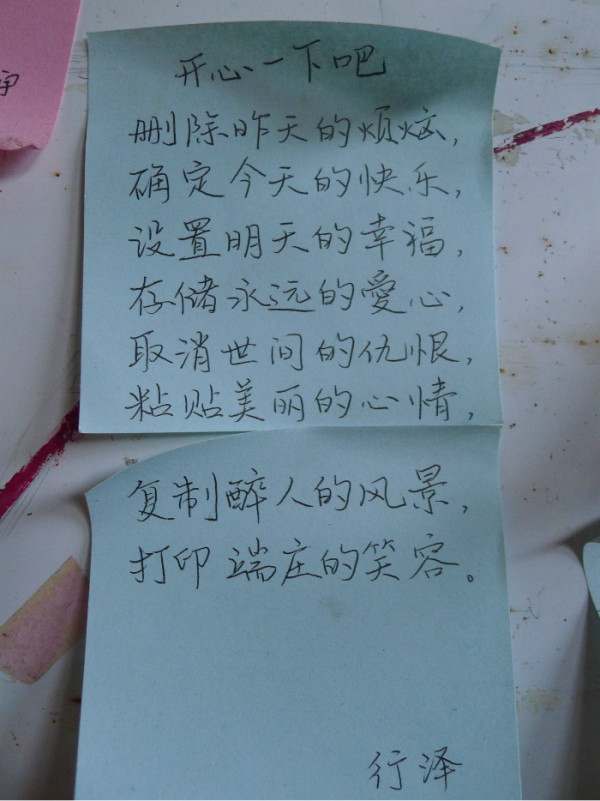 开心一下吧
删除昨天的烦恼,
确定今天的快乐,
设置明天的幸福,
存储永远的愛心,
取消世间的仇恨,
粘贴美丽的心情,
复制醉人的风景,
打印端庄的笑容。
行泽